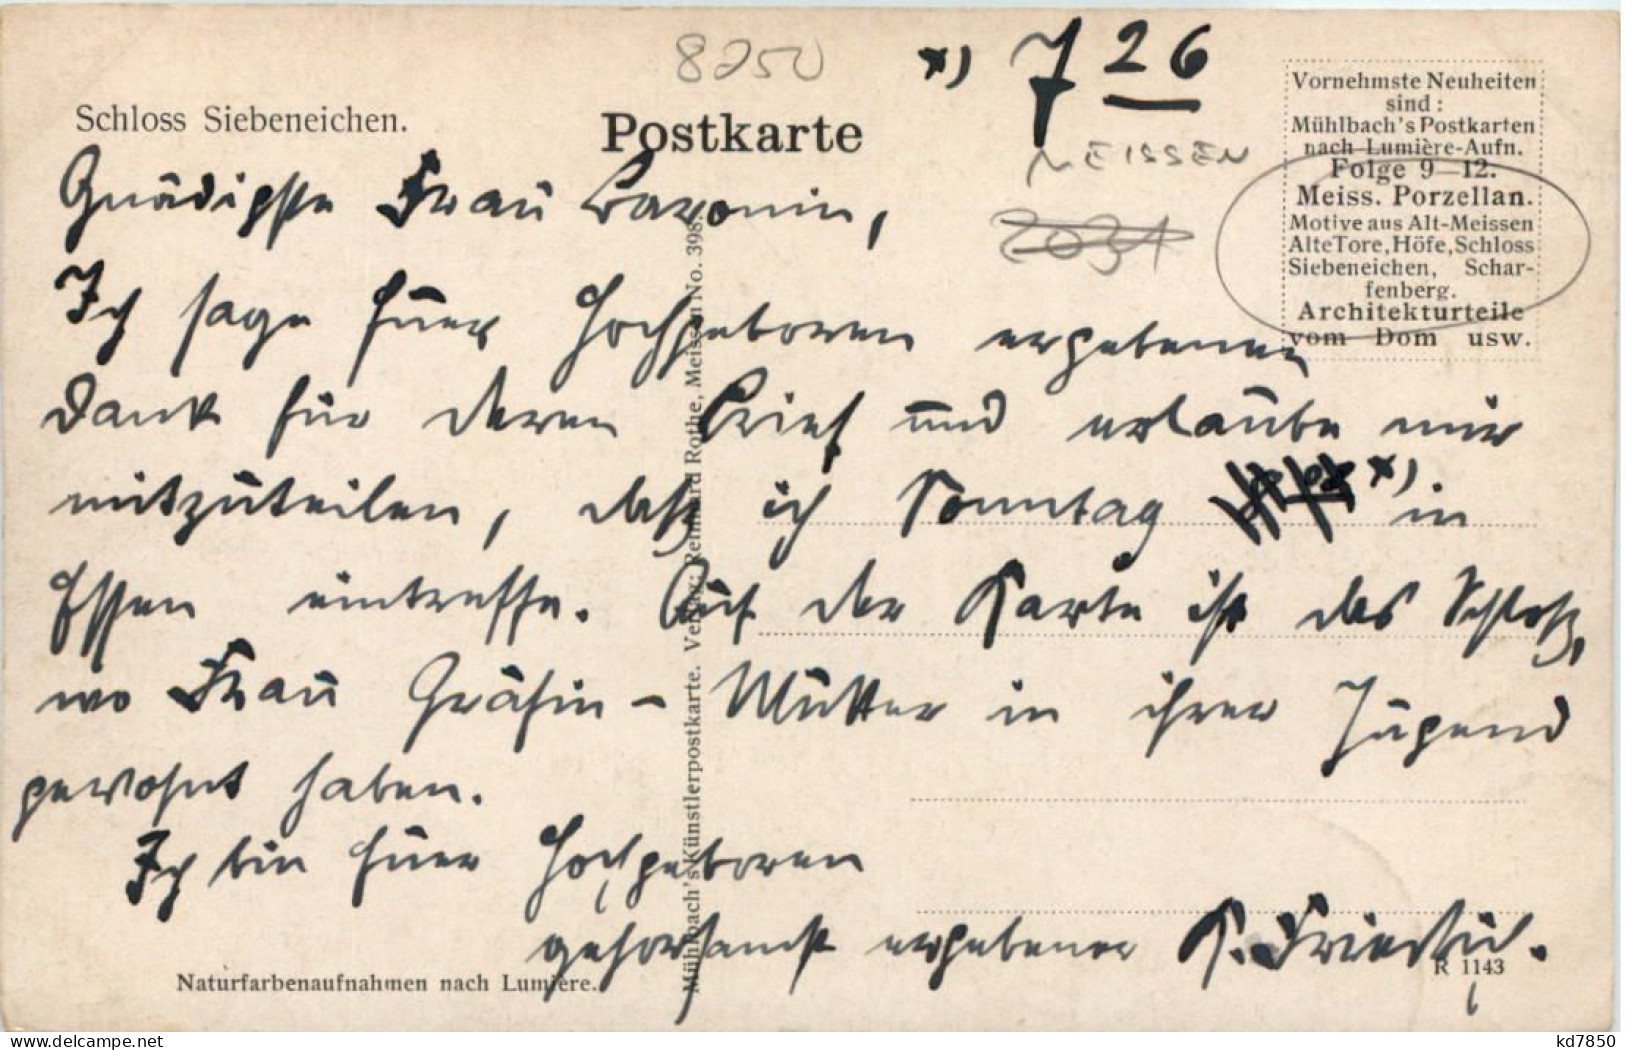 8250
x) 7 26
Schloss Siebeneichen.
Postkarte
MEISSEN
2031
Vornehmste Neuheiten
sind :
Mühlbach's Postkarten
nach Lumière-Aufn.
Folge 9—12.
Meiss. Porzellan.
Motive aus Alt-Meissen
Alte Tore, Höfe, Schloss
Siebeneichen, Schar-
fenberg.
Architekturteile
vom Dom usw.
Gnädigste Frau Baronin,
Ich sage Euer Hochgeboren ergebenen
Dank für deren Brief und erlaube mir
mitzuteilen, daß ich Sonntag x) in
Essen eintreffe. Auf der Karte ist das Schloß,
wo Frau Gräfin - Mutter in ihrer Jugend
gewohnt haben.
Ich bin Euer Hochgeboren
gehorsamst ergebener K.
Mühlbach's Künstlerpostkarte. Verlag: Reinhard Rothe, Meissen No. 398.
Naturfarbenaufnahmen nach Lumière.
R 1143
kd7850